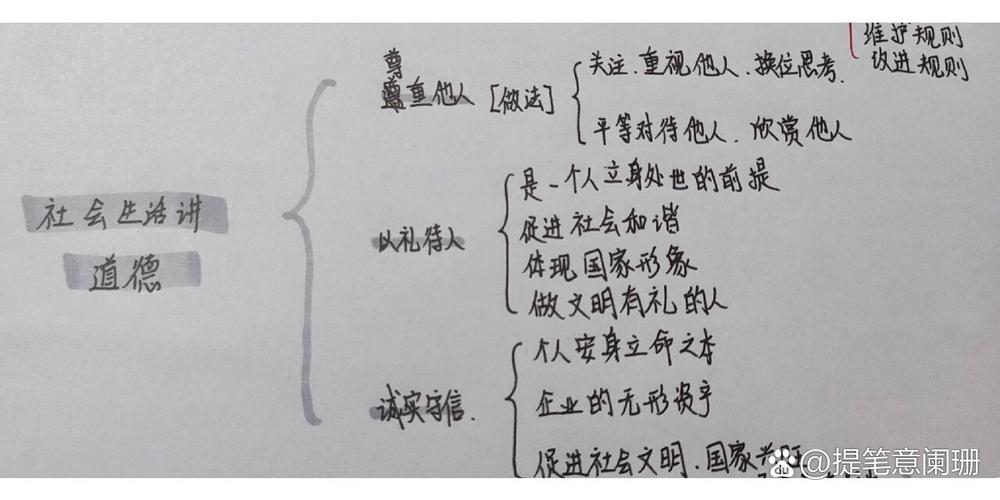 维护规则
改进规则
尊
尊重他人 [做法]
关注、重视他人、换位思考.
平等对待他人、欣赏他人
社会生活讲
道德
以礼待人
是一个人立身处世的前提
促进社会和谐
体现国家形象
做文明有礼的人
诚实守信.
个人安身立命之本
企业的无形资产
促进社会文明、国家兴旺
@提笔意阑珊